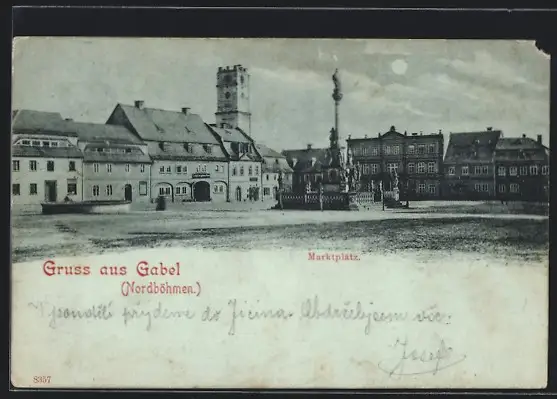 Marktplatz.
Gruss aus Gabel
(Nordböhmen.)
V pondělí přijdeme do Jičína. Obdržel jsem víc.
Josef
8357